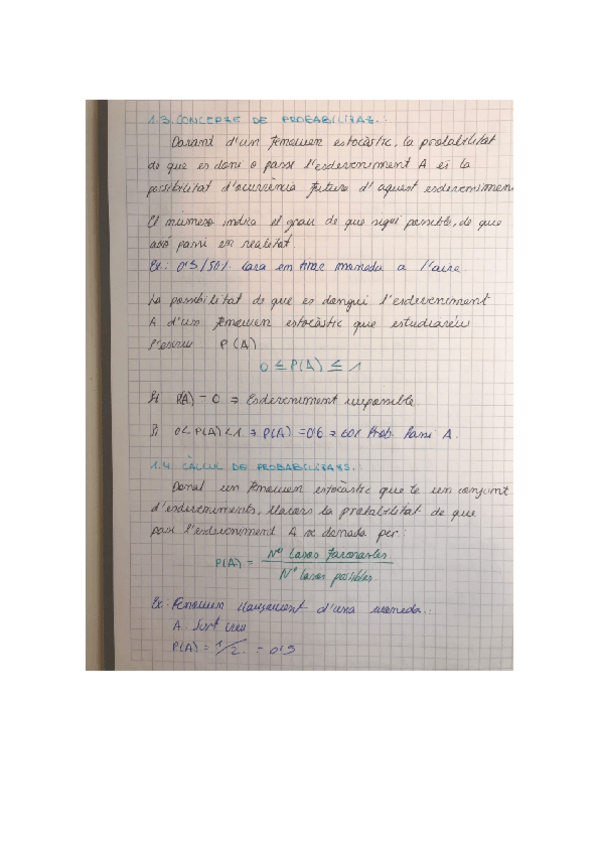 1.3. CONCEPTE DE PROBABILITAT.:
Davant d'un fenomen estocàstic, la probabilitat
de que es doni o passi l'esdeveniment A és la
possibilitat d'ocurrència futura d'aquest esdeveniment
El numero indica el grau de que sigui possible, de que
això passi en realitat.
Ex: 0'5/50%. Cara em tirar moneda a l'aire.
La possibilitat de que es dongui l'esdeveniment
A d'un fenomen estocàstic que estudiarem
s'escriu P(A)
0 ≤ P(A) ≤ 1
Si P(A) = 0 ⇒ Esdeveniment impossible.
Si 0 < P(A) < 1 ⇒ P(A) = 0'6 ⇒ 60% Prob. Passi A.
1.4. CÀLCUL DE PROBABILITATS.:
Donat un fenomen estocàstic que te un conjunt
d'esdeveniments, llavors la probabilitat de que
passi l'esdeveniment A ve donada per:
P(A) = Nº Casos favorables
Nº casos posibles
Ex: Fenomen llançament d'una moneda.:
A. Surt creu
P(A) = 1/2. = 0'5